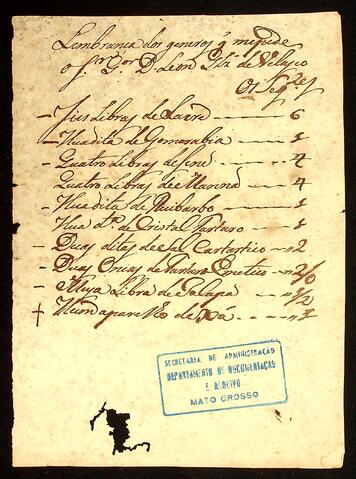 Lembranca dos generos q̃ me pede
o Sr. Gor. D. Leon de Velasco
Os Seg.es
– Seis Libras de – 6
– Hua dita de Gomarabia – 1
– Quatro Libras de Sene – 4
Quatro Libras de Manná – 4
– Hua dita de Ruibarbo – 1
– Hua d.ª de Cristal Tartaro – 1
– Duas ditas de Sal Cartartico – 2
– Duas Oncas de Tartaro Emetico – 2/0
– Meya Libra de Jalapa – 1/2
+ Hum aparelho de Xá – 1
SECRETARIA DE ADMINISTRAÇÃO
DEPARTAMENTO DE DOCUMENTAÇÃO
E ARQUIVO
MATO GROSSO